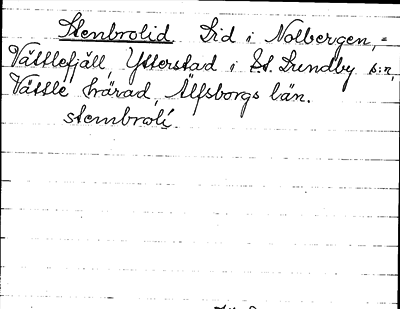 Stenbrolid Lid i Nolbergen,
Vättlefjäll, Ytterstad i St. Lundby s:n,
Vättle härad, Älfsborgs län.
stembroli.